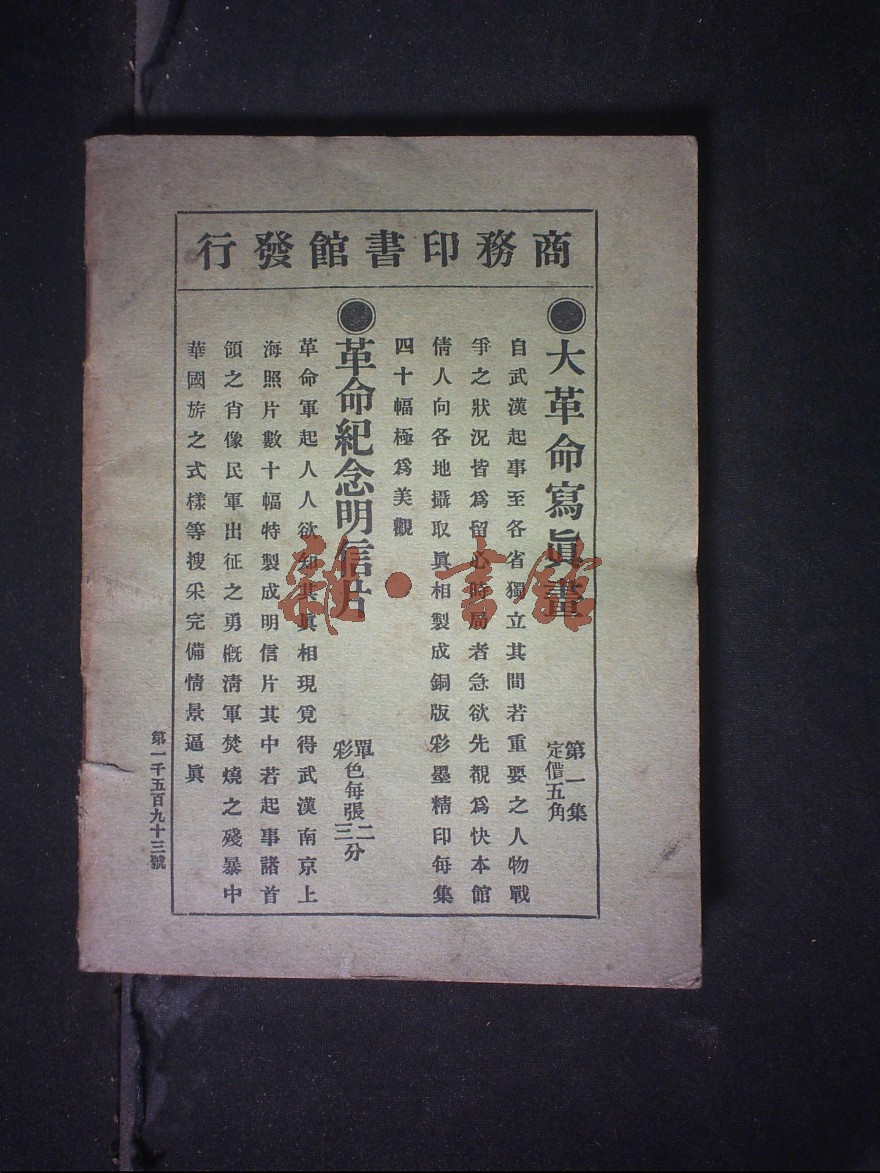 商務印書館發行
●大革命寫眞畫
第一集
定價五角
自武漢起事至各省獨立其間若重要之人物戰
爭之狀況皆爲留心時局者急欲先覩爲快本館
倩人向各地攝取眞相製成銅版彩墨精印每集
四十幅極爲美觀
●革命紀念明信片
單彩色每張二三分
革命軍起人人欲知其眞相現覓得武漢南京上
海照片數十幅特製成明信片其中若起事諸首
領之肖像民軍出征之勇概淸軍焚燒之殘暴中
華國旂之式樣等搜采完備情景逼眞
第一千五百九十三號
雜·書館